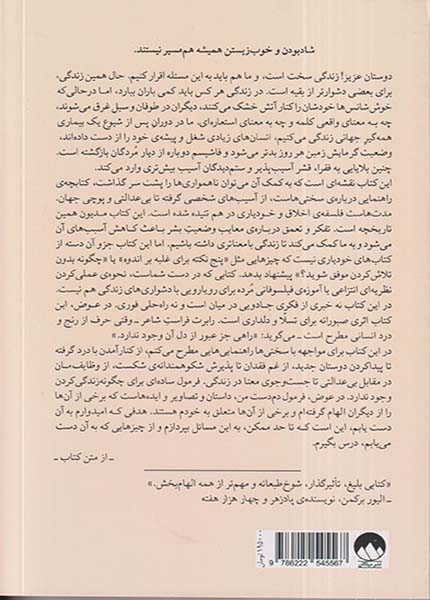 شادبودن و خوب‌زیستن همیشه هم‌مسیر نیستند.
دوستان عزیز! زندگی سخت است، و ما هم باید به این مسئله اقرار کنیم. حال همین زندگی،
برای بعضی دشوارتر از بقیه است. در زندگی هر کس باید کمی باران ببارد، اما درحالی‌که
خوش‌شانس‌ها خودشان را کنار آتش خشک می‌کنند، دیگران در طوفان و سیل غرق می‌شوند،
چه به معنای واقعی کلمه و چه به معنای استعاره‌ای. ما در دوران پس از شیوع یک بیماری
همه‌گیر جهانی زندگی می‌کنیم، انسان‌های زیادی شغل و پیشه‌ی خود را از دست داده‌اند،
وضعیت گرمایش زمین هر روز بدتر می‌شود و فاشیسم دوباره از دیار مُردگان بازگشته است.
چنین بلایایی به فقرا، قشر آسیب‌پذیر و ستم‌دیدگان آسیب بیش‌تری وارد می‌کند.
این کتاب نقشه‌ای است که به کمک آن می‌توان ناهمواری‌ها را پشت سر گذاشت، کتابچه‌ی
راهنمایی درباره‌ی سختی‌هاست، از آسیب‌های شخصی گرفته تا بی‌عدالتی و پوچی جهان.
مدت‌هاست فلسفه‌ی اخلاق و خودیاری در هم تنیده شده است. این کتاب مدیون همین
تاریخچه است. تفکر و تعمق درباره‌ی معایب وضعیتِ بشر باعث کاهش آسیب‌های آن
می‌شود و به ما کمک می‌کند تا زندگی بامعناتری داشته باشیم. اما این کتاب جزو آن دسته از
کتاب‌های خودیاری نیست که چیزهایی مثل «پنج نکته برای غلبه بر اندوه» یا «چگونه بدون
تلاش‌کردن موفق شوید؟» پیشنهاد بدهد. کتابی که در دست شماست، نحوه‌ی عملی‌کردن
نظریه‌ای انتزاعی یا آموزه‌ی فیلسوفانی مُرده برای رویارویی با دشواری‌های زندگی هم نیست.
در این کتاب نه خبری از فکری جادویی در میان است و نه راه‌حلی فوری. در عوض، این
کتاب اثری صبورانه برای تسلّا و دلداری است. رابرت فراستِ شاعر ـ وقتی حرف از رنج و
درد انسانی مطرح است ـ می‌گوید: «راهی جز عبور از دل آن وجود ندارد.»
در این کتاب برای مواجهه با سختی‌ها راهنمایی‌هایی مطرح می‌کنم، از کنارآمدن با درد گرفته
تا پیداکردن دوستان جدید، از غم فقدان تا پذیرش شکوهمندانه‌ی شکست، از وظایف‌مان
در مقابل بی‌عدالتی تا جست‌وجوی معنا در زندگی. فرمول ساده‌ای برای چگونه‌زندگی‌کردن
وجود ندارد. در عوض، فرمول دم‌دست من، داستان و تصاویر و ایده‌هاست که برخی از آن‌ها
را از دیگران الهام گرفته‌ام و برخی از آن‌ها متعلق به خودم هستند. هدفی که امیدوارم به آن
دست یابم، این است که تا حد ممکن، به این مسائل بپردازم و از چیزهایی که به آن دست
می‌یابم، درس بگیرم.
ـ از متن کتاب ـ
«کتابی بلیغ، تأثیرگذار، شوخ‌طبعانه و مهم‌تر از همه الهام‌بخش.»
ـ الیور برکمن، نویسنده‌ی پادزهر و چهار هزار هفته
۱۹۵۰۰۰ تومان
9 786222 545567